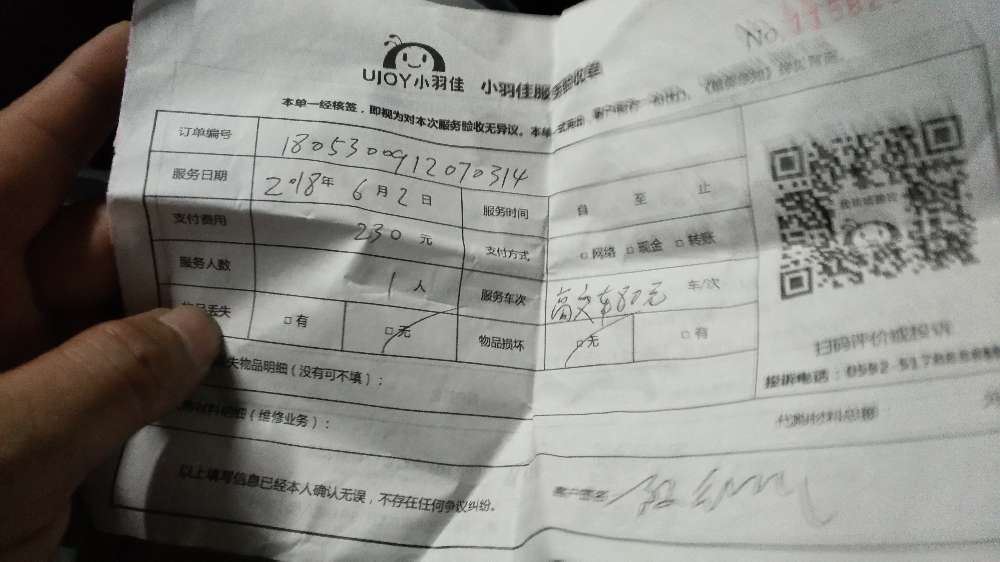 No.
UJOY小羽佳 小羽佳服务验收单
本单一经核签，即视为对本次服务验收无异议。本单
订单编号 1805300912070314
服务日期 2018年 6月2日 服务时间 自 至 止
支付费用 230元 支付方式 □网络 □现金 □转账
服务人数 1人 服务车次 高交车80元 车/次
物品丢失 □有 □无 物品损坏 □无 □有
扫码评价或投诉
失物品明细（没有可不填）：
投诉电话：0592-5176
材料明细（维修业务）： 代购材料总额
以上填写信息已经本人确认无误，不存在任何争议纠纷。 客户签名